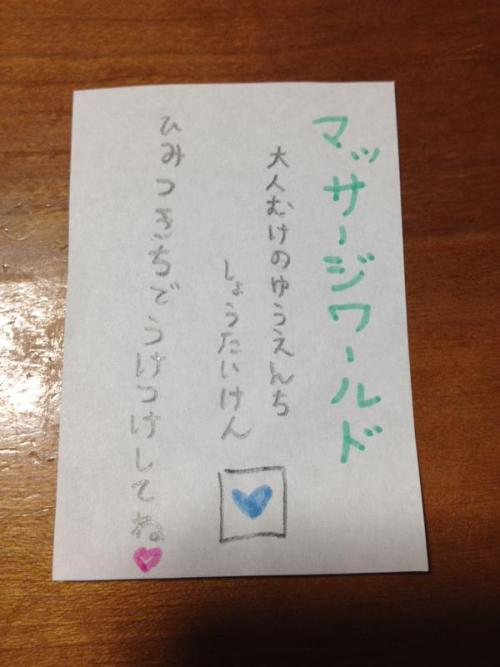 マッサージワールド
大人むけのゆうえんち
しょうたいけん
ひみつきちでうけつけしてね